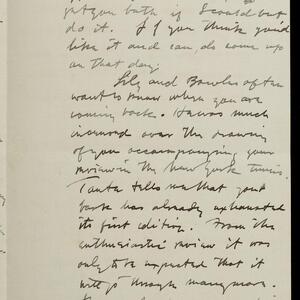 get you both if I could but
do it. If you think you'd
like it and can do come up
on that day.
Lily and Bowles often
want to know when you are
coming back. He was much
incensed over the drawing
of you accompanying your
review in the New York Times.
Tanta tells me that your
book has already exhausted
its first edition. From the
enthusiastic review it was
only to be expected that it
will go through many more.